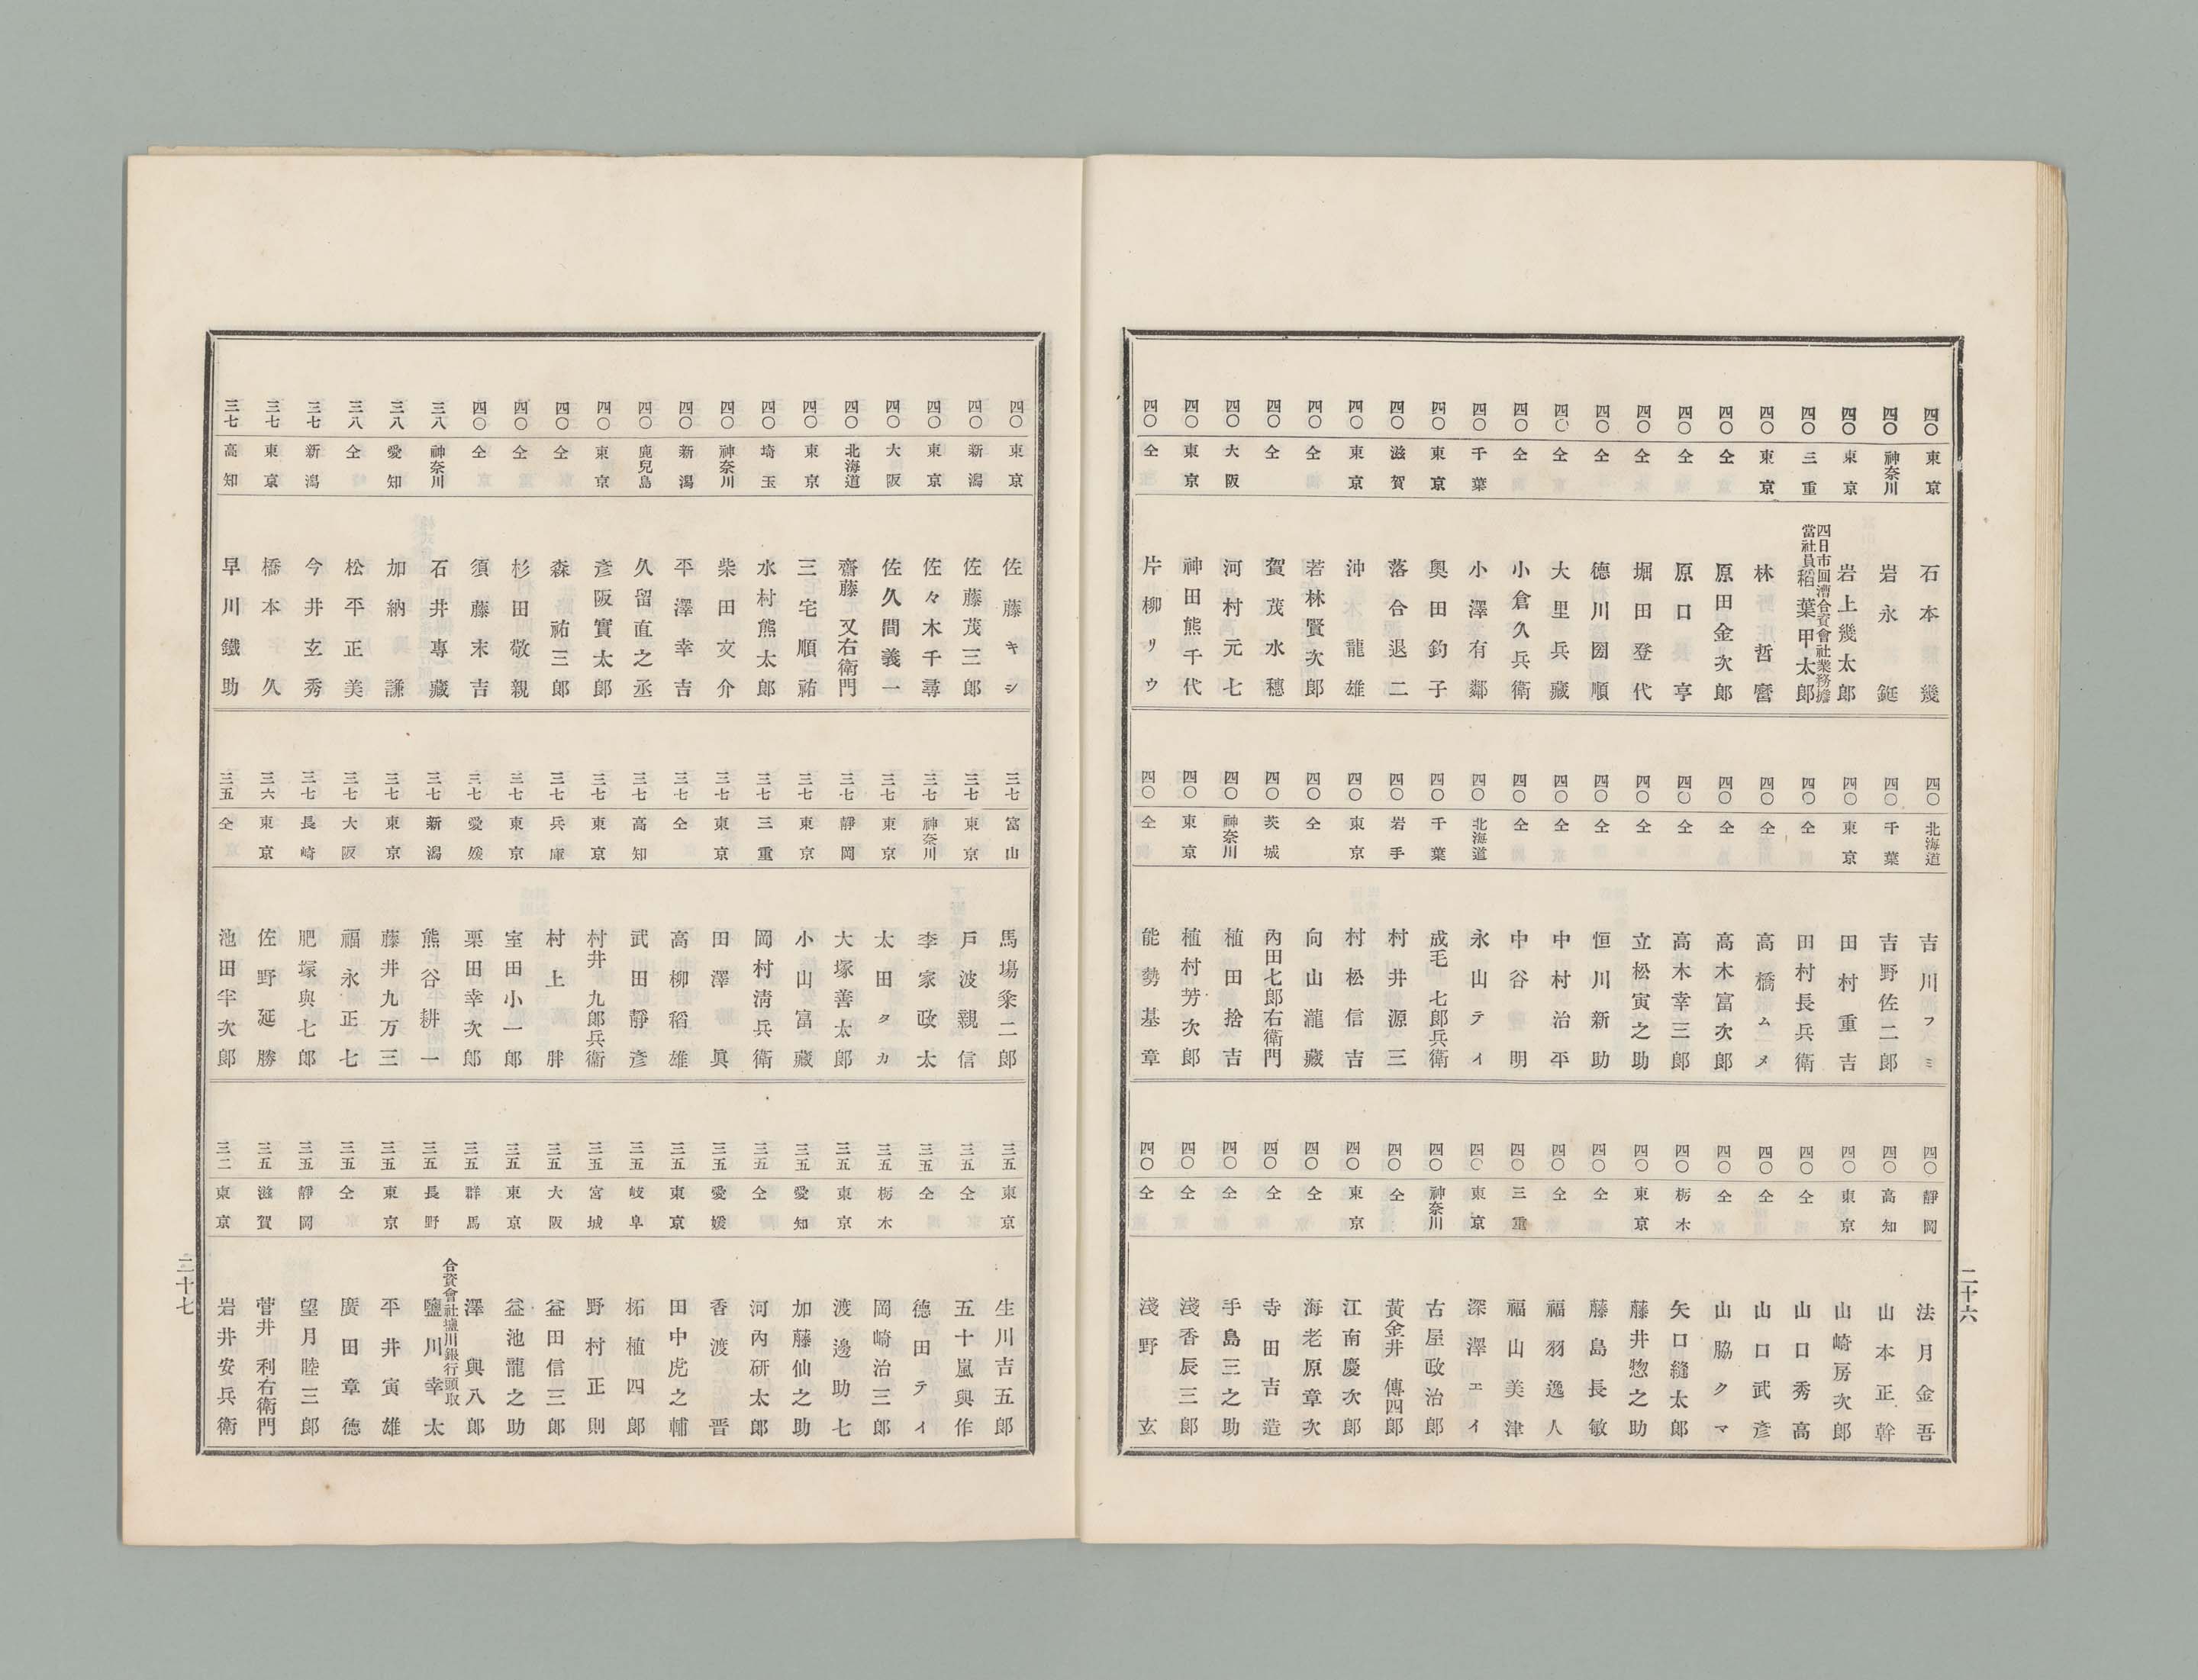 四〇 東京 石本幾
四〇 神奈川 岩永鋋
四〇 東京 岩上幾太郎
四〇 三重 四日市回漕合資會社業務擔當社員 稻葉甲太郎
四〇 東京 林哲麿
四〇 仝 原田金次郎
四〇 仝 原口亨
四〇 仝 堀田登代
四〇 仝 德川圀順
四〇 仝 大里兵藏
四〇 仝 小倉久兵衛
四〇 千葉 小澤有鄰
四〇 東京 奥田鈞子
四〇 滋賀 落合退二
四〇 東京 沖龍雄
四〇 仝 若林賢次郎
四〇 仝 賀茂水穗
四〇 大阪 河村元七
四〇 東京 神田熊千代
四〇 仝 片柳リウ
四〇 北海道 吉川フミ
四〇 千葉 吉野佐二郎
四〇 東京 田村重吉
四〇 仝 田村長兵衛
四〇 仝 高橋ムメ
四〇 仝 高木富次郎
四〇 仝 高木幸三郎
四〇 仝 立松寅之助
四〇 仝 恒川新助
四〇 仝 中村治平
四〇 仝 中谷明
四〇 北海道 永山テイ
四〇 千葉 成毛七郎兵衛
四〇 岩手 村井源三
四〇 東京 村松信吉
四〇 仝 向山瀧藏
四〇 茨城 內田七郎右衛門
四〇 神奈川 植田捨吉
四〇 東京 植村芳次郎
四〇 仝 能勢基章
四〇 靜岡 法月金吾
四〇 高知 山本正幹
四〇 東京 山崎房次郎
四〇 仝 山口秀高
四〇 仝 山口武彥
四〇 仝 山脇クマ
四〇 栃木 矢口縫太郎
四〇 東京 藤井惣之助
四〇 仝 藤島長敏
四〇 仝 福羽逸人
四〇 三重 福山美津
四〇 東京 深澤エイ
四〇 神奈川 古屋政治郎
四〇 仝 黃金井傳四郎
四〇 東京 江南慶次郎
四〇 仝 海老原章次
四〇 仝 寺田吉造
四〇 仝 手島三之助
四〇 仝 淺香辰三郎
四〇 仝 淺野玄
二十六
四〇 東京 佐藤キシ
四〇 新潟 佐藤茂三郎
四〇 東京 佐々木千尋
四〇 大阪 佐久間義一
四〇 北海道 齋藤又右衛門
四〇 東京 三宅順祐
四〇 埼玉 水村熊太郎
四〇 神奈川 柴田文介
四〇 新潟 平澤幸吉
四〇 鹿兒島 久留直之丞
四〇 東京 彥阪實太郎
四〇 仝 森祐三郎
四〇 仝 杉田敬親
四〇 仝 須藤末吉
三八 神奈川 石井專藏
三八 愛知 加納謙
三八 仝 松平正美
三七 新潟 今井玄秀
三七 東京 橋本久
三七 高知 早川鐵助
三七 富山 馬塲粂二郎
三七 東京 戶波親信
三七 神奈川 李家政太
三七 東京 太田タカ
三七 靜岡 大塚善太郎
三七 東京 小山富藏
三七 三重 岡村淸兵衛
三七 東京 田澤眞
三七 仝 高柳稻雄
三七 高知 武田靜彥
三七 東京 村井九郎兵衞
三七 兵庫 村上胖
三七 東京 室田小一郎
三七 愛媛 栗田幸次郎
三七 新潟 熊谷耕一
三七 東京 藤井九万三
三七 大阪 福永正七
三七 長崎 肥塚與七郎
三六 東京 佐野延勝
三五 仝 池田半次郎
三五 東京 生川吉五郎
三五 仝 五十嵐與作
三五 仝 德田テイ
三五 栃木 岡崎治三郎
三五 東京 渡邊助七
三五 愛知 加藤仙之助
三五 仝 河內研太郎
三五 愛媛 香渡晋
三五 東京 田中虎之輔
三五 岐阜 柘植四郎
三五 宮城 野村正則
三五 大阪 益田信三郎
三五 東京 益池龍之助
三五 群馬 澤與八郎
三五 長野 合資會社塩川銀行頭取 鹽川幸太
三五 東京 平井寅雄
三五 仝 廣田章德
三五 靜岡 望月陸三郎
三五 滋賀 菅井利右衛門
三二 東京 岩井安兵衛
二十七